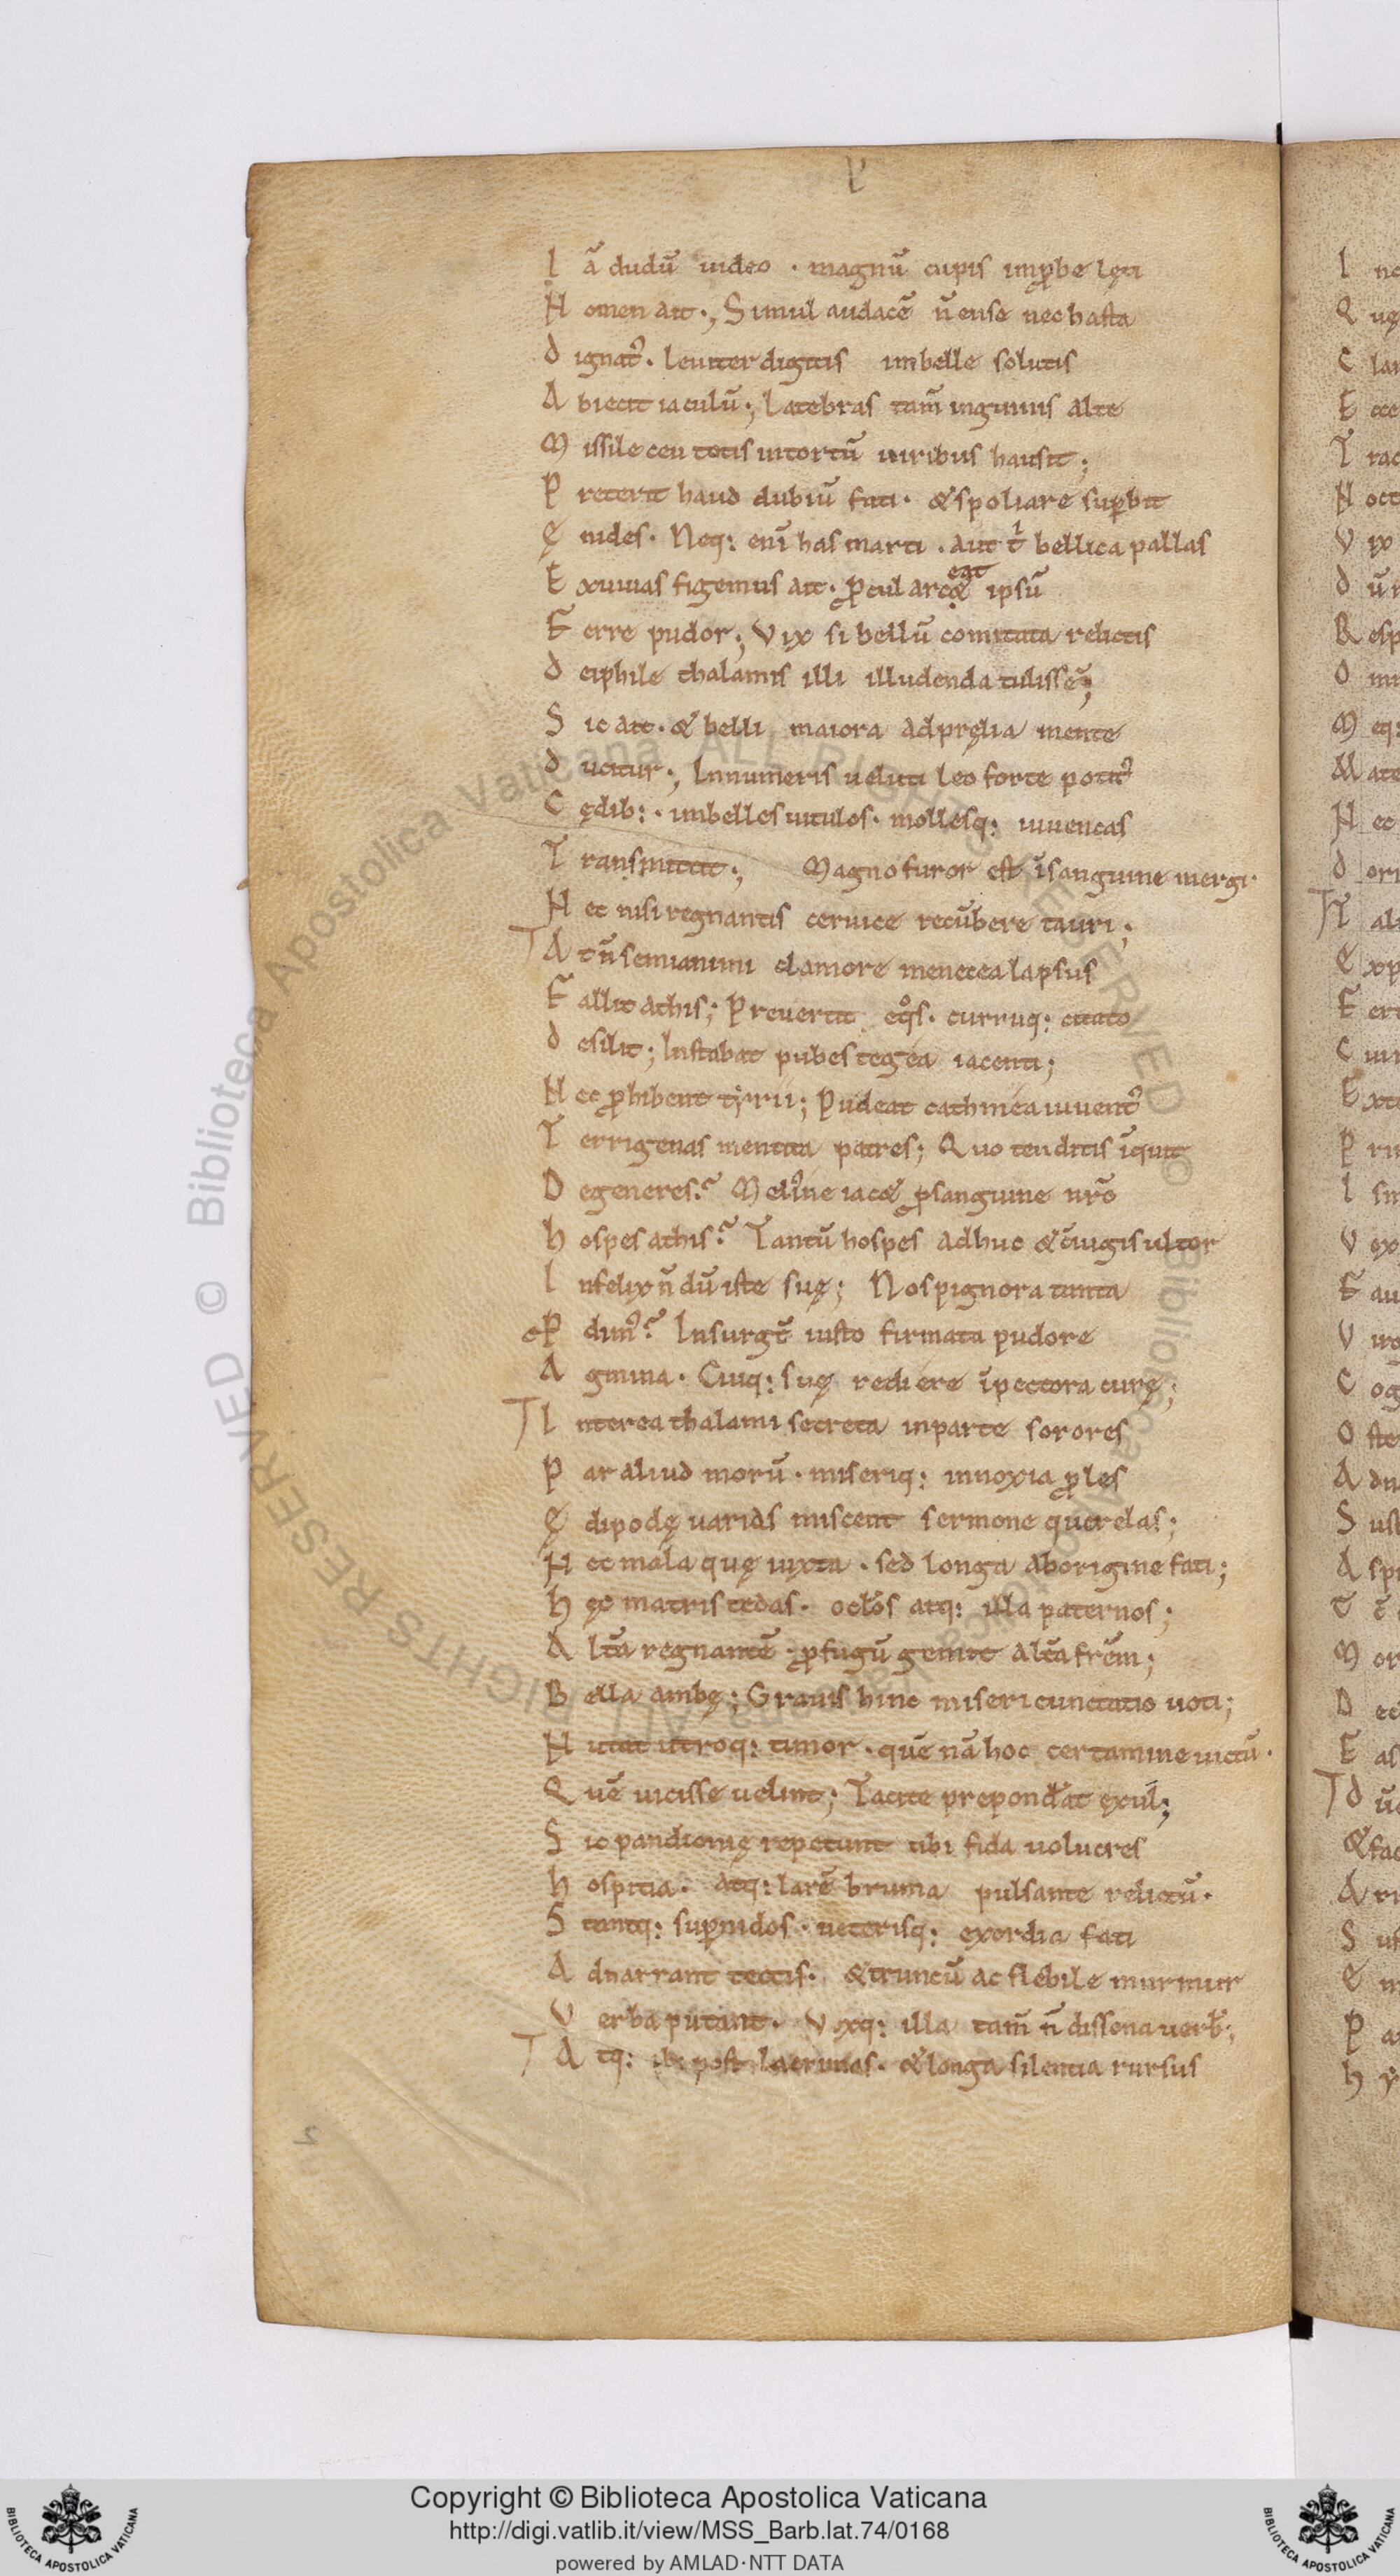 I ã dudũ uideo · magnũ cupis imꝓbe lęti
N omen ait ·; Simul audacẽ ñ ense nec hasta
D ignat᷒ · leuiter digitis imbelle solutis
A biecit iaculũ ·; Latebras tam̃ inguinis alte
M issile ceu totis intortũ uiribus hausit ;
P reterit haud dubiũ fati · & spoliare suꝑbit
Ę nides · Neq: enĩ has marti · aut t ͥ bellica pallas
E xuuias figemus ait · ꝓcul arc& ipsũ
eat
F erre pudor ; Vix si bellũ comitata relictis
D eiphile thalamis illi illudenda tulissẽ ;
S ic ait · & belli maiora ad pręlia mente
D ucitur ·; Innumeris ueluti leo forte potit᷒
C ędib: · imbelles uitulos · mollesq: iuuencas
T ransmittit ; Magno furor est ĩ sanguine mergi ·
N ec nisi regnantis ceruice recũbere tauri ;
A t ñ semianimi clamore menecea lapsus
F allit athis ; Preuertit eq̊s · curruq: citato
D esilit ; Instabat pubes tegea iacenti ;
N ec ꝓhibent tyrii ; Pudeat cathmea iuuent᷒
T errigenas mentita patres ; Quo tenditis ĩquit
D egeneres ? Meli᷒ne iac& ꝓ sanguine nr̃o
h ospes athis ? Tantũ hospes adhuc & cũiugis ultor
I nfelix ñ dũ iste suę ; Nos pignora tanta
P dim᷒ ? Insurgt̃ iusto firmata pudore
A gmina · Cuiq: suę rediere ĩ pectora curę ;
I nterea thalami secreta in parte sorores
P ar aliud morũ · miseriq: innoxia ꝓles
Ę dipodę uarias miscent sermone querelas ;
N ec mala quę iuxta · sed longa ab origine fati ;
h ęc matris tedas · oclo̾s atq: illa paternos ;
A lt̃a regnantẽ · ꝓfugũ gemit alt̃a fr̃em ;
B ella ambę ; Grauis hinc miseri cunctatio uoti ;
N utat utroq: timor · quẽ nã hoc certamine uictũ ·
Q uẽ uicisse uelint ; Tacite prepond̾at exul ;
S ic pandionię repetunt ubi fida uolucres
h ospitia · atq: larẽ bruma pulsante relictũ ·
S tantq: suꝑ nidos · ueterisq: exordia fati
A dnarrant tectis · & truncũ ac flebile murmur
V erba putant · Voxq: illa tam̃ ñ dissona uerb̾ ;
A tq: ibi post lacrimas · & longa silentia rursus
Copyright © Biblioteca Apostolica Vaticana
http://digi.vatlib.it/view/MSS_Barb.lat.74/0168
powered by AMLAD·NTT DATA